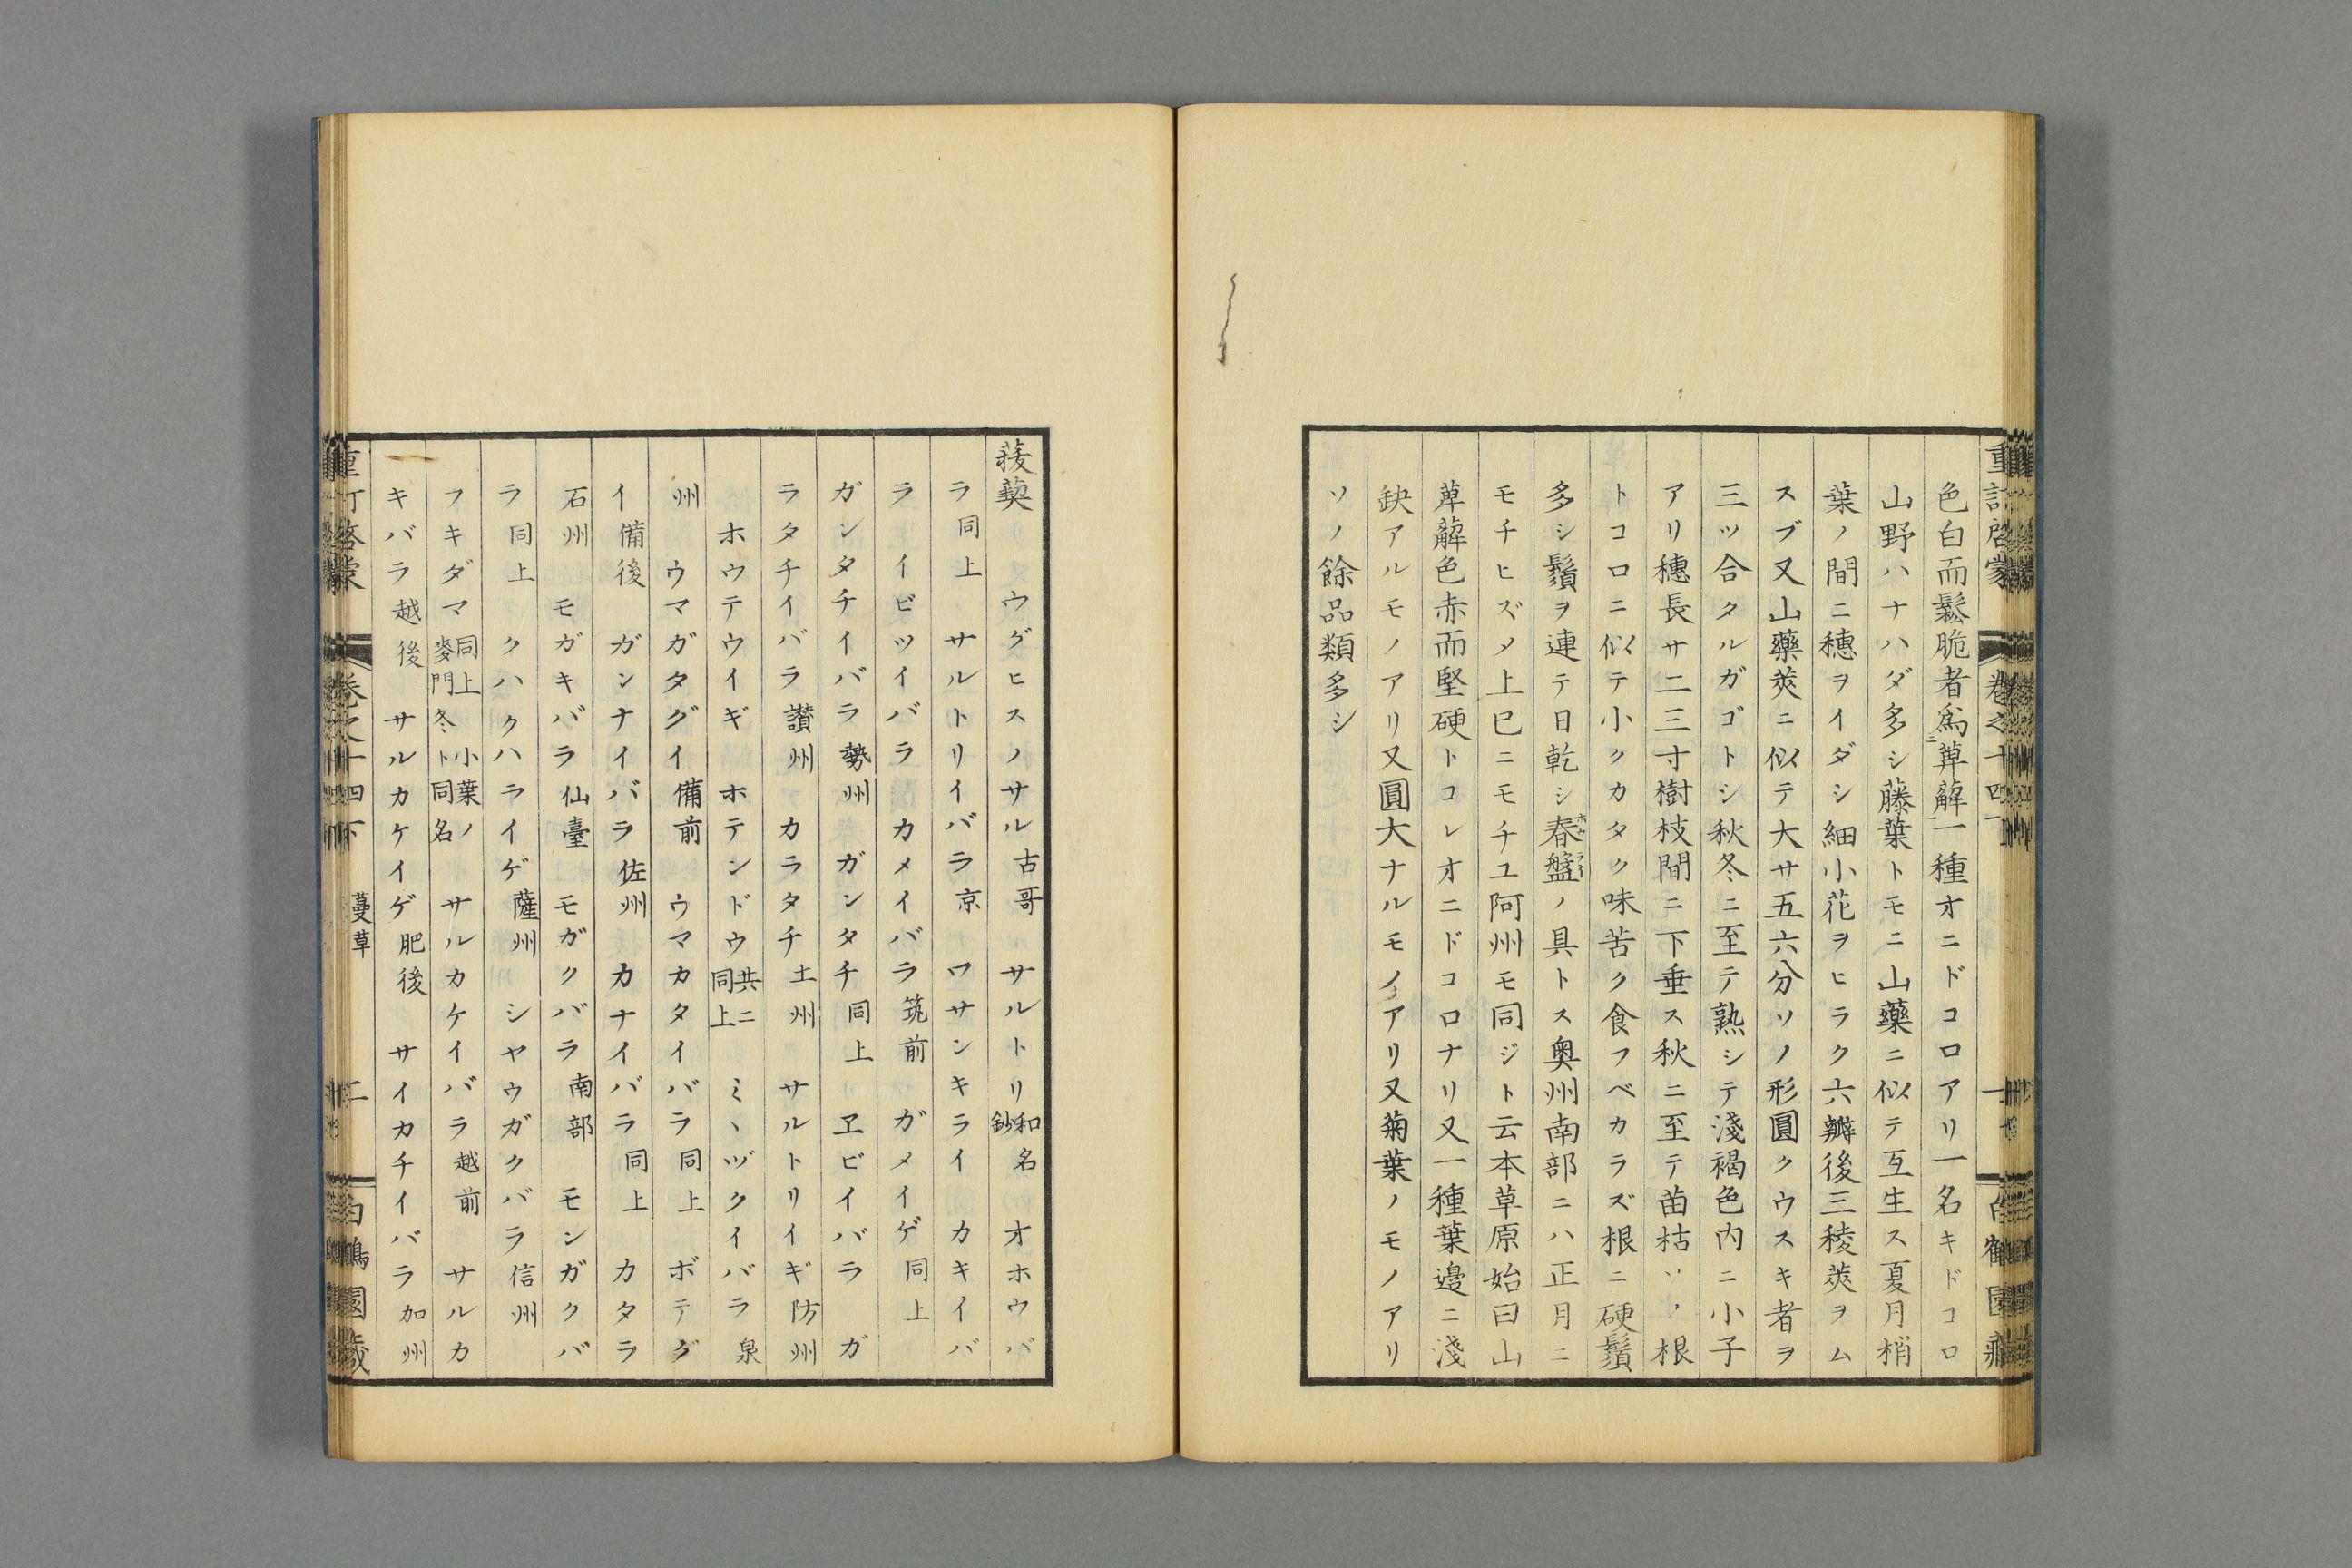 色白而鬆脆者為萆薢一種オニドコロアリ一名キドコロ
山野ハナハダ多シ藤葉トモニ山藥ニ似テ互生ス夏月梢
葉ノ間ニ穗ヲイダシ細小花ヲヒラク六瓣後三稜莢ヲム
スブ又山藥莢ニ似テ大サ五六分ソノ形圓クウスキ者ヲ
三ツ合タルガゴトシ秋冬ニ至テ熟シテ淺褐色内ニ小子
アリ穗長サ二三寸樹枝間ニ下垂ス秋ニ至テ苗枯ソノ根
トコロニ似テ小クカタク味苦ク食フベカラズ根ニ硬鬚
多シ鬚ヲ連テ日乾シ春盤ノ具トス奥州南部ニハ正月ニ
モチヒズメ上巳ニモチユ阿州モ同ジト云本草原始曰山
萆薢色赤而堅硬トコレオニドコロナリ又一種葉邊ニ淺
缺アルモノアリ又圓大ナルモノアリ又菊葉ノモノアリ
ソノ餘品類多シ
菝葜 ウグヒスノサル古哥 サルトリ和名鈔 オホウバ
ラ同上 サルトリイバラ京 ワサンキライ カキイバ
ラ イビツイバラ カメイバラ筑前 ガメイゲ同上
ガンタチイバラ勢州 ガンタチ同上 ヱビイバラ ガ
ラタチイバラ讃州 カラタチ土州 サルトリイギ防州
ホウテウイギ ホテンドウ共ニ同上 ミヽヅクイバラ泉
州 ウマガタグイ備前 ウマカタイバラ同上 ボテグ
イ備後 ガンナイバラ佐州 カナイバラ同上 カタラ
石州 モガキバラ仙臺 モガクバラ南部 モンガクバ
ラ同上 クハクハライゲ薩州 シヤウガクバラ信州
フキダマ同上小葉ノ麥門冬ト同名 サルカケイバラ越前 サルカ
キバラ越後 サルカケイゲ肥後 サイカチイバラ加州
蔓草